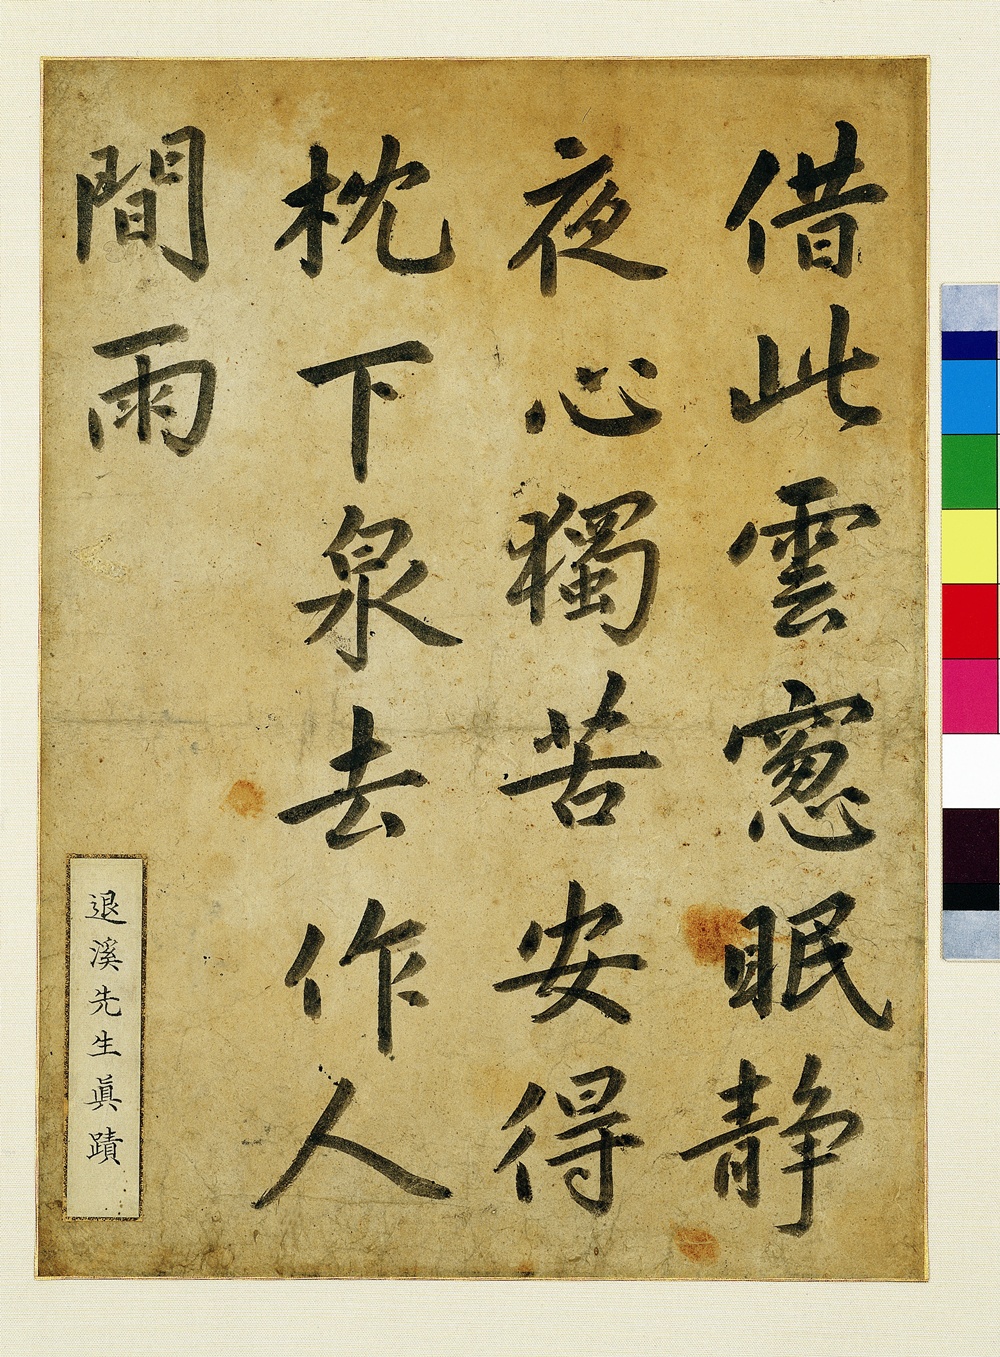 借此雲窻眠静
夜心獨苦安得
枕下泉去作人
間雨
退溪先生眞蹟